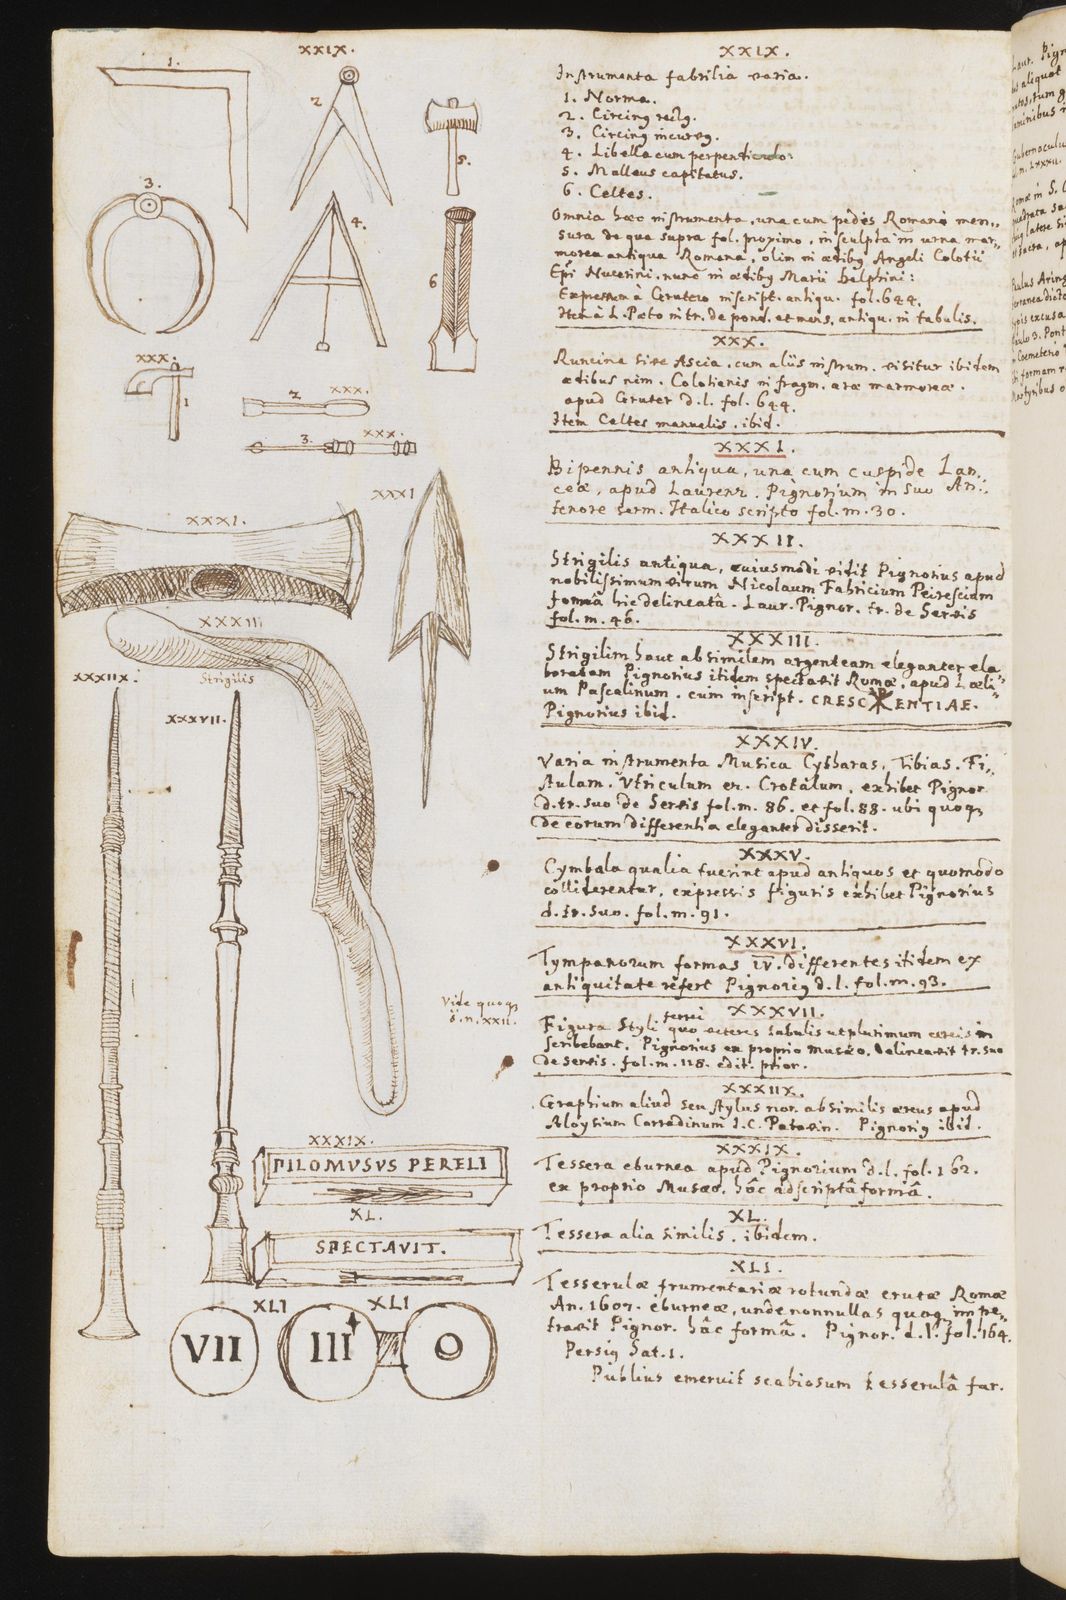 XXIX.
1.
2
5.
3.
4.
6
XXX.
1
2 XXX.
3. XXX.
XXXI
XXXI.
XXXII.
Strigilis
XXXIIX.
XXXVII.
Vide quoq;
n. XXII.
XXXIX.
PILOMVSVS PERELI
XL.
SPECTAVIT.
XLI XLI
VII III O
XXIX.
Instrumenta fabrilia varia.
1. Norma.
2. Circing rectg.
3. Circing incurvg.
4. Libella cum perpendiculo.
5. Malleus capitatus.
6. Celtes.
Omnia haec instrumenta, una cum pedis Romani men-
sura de qua supra fol. proximo, insculpta in urna mar-
morea antiqua Romana, olim in aedibg Angeli Colotii
Epi Nucerini, nunc in aedibg Marii Delphini:
Expressa à Grutero inscript. antiqu. fol. 644.
Item à L. Paeto in tr. de pond. et mens. antiqu. in tabulis.
XXX.
Runcina sive Ascia, cum aliis instrum. visitur ibidem
aedibus nim. Colotianis in fragm. arae marmoreae.
apud Gruter d. l. fol. 644.
Item Celtes manualis. ibid.
XXXI.
Bipennis antiqua, una cum cuspide Lan-
ceae, apud Laurent. Pignorium in suo An-
tenore serm. Italico scripto fol. m. 30.
XXXII.
Strigilis antiqua, cuiusmodi vidit Pignorius apud
nobilissimum virum Nicolaum Fabricium Peirescium
formâ hic delineatâ. Laur. Pignor. tr. de Servis
fol. m. 46.
XXXIII.
Strigilim haut absimilem argenteam eleganter ela-
boratam Pignorius itidem spectavit Romae, apud Laeli-
um Pascalinum. cum inscript. CRESC☧ENTIAE.
Pignorius ibid.
XXXIV.
Varia instrumenta Musica Cytharas, Tibias, Fi-
stulam, Vtriculum et Crotalum, exhibet Pignor.
d. tr. suo de Servis fol. m. 86. et fol. 88. ubi quoq;
de eorum differentia eleganter disserit.
XXXV.
Cymbala qualia fuerint apud antiquos et quomodo
colliderentur, expressis figuris exhibet Pignorius
d. tr. suo. fol. m. 91.
XXXVI.
Tympanorum formas IV. differentes itidem ex
antiquitate refert Pignorig d. l. fol. m. 93.
XXXVII.
Figura Styli ferrei quo veteres tabulis utplurimum cereis in
scribebant. Pignorius ex proprio musaeo, delineavit tr. suo
de Servis. fol. m. 118. edit. prior.
XXXIIX.
Graphium aliud seu stylus non absimilis aereus apud
Aloysium Corradinum I. C. Patavin. Pignorig ibid.
XXXIX.
Tessera eburnea apud Pignorium d. l. fol. 162.
ex proprio Musaeo, hâc adscriptâ formâ.
XL.
Tessera alia similis, ibidem.
XLI.
Tesserulae frumentariae rotundae erutae Romae
An. 1607. eburneae, unde nonnullas quoq; impe-
travit Pignor. hâc formâ. Pignor. d. l. fol. 164.
Persig Sat. 1.
Publius emeruit scabiosum tesserulâ far.
Laur. Pign
aliquot
Gubernaculu
n. LXXXII.
Romae in S.
quadrata
Paulus Aring
excusa
Paulo 3. Pont
Coemeterio
formam
Martyribus